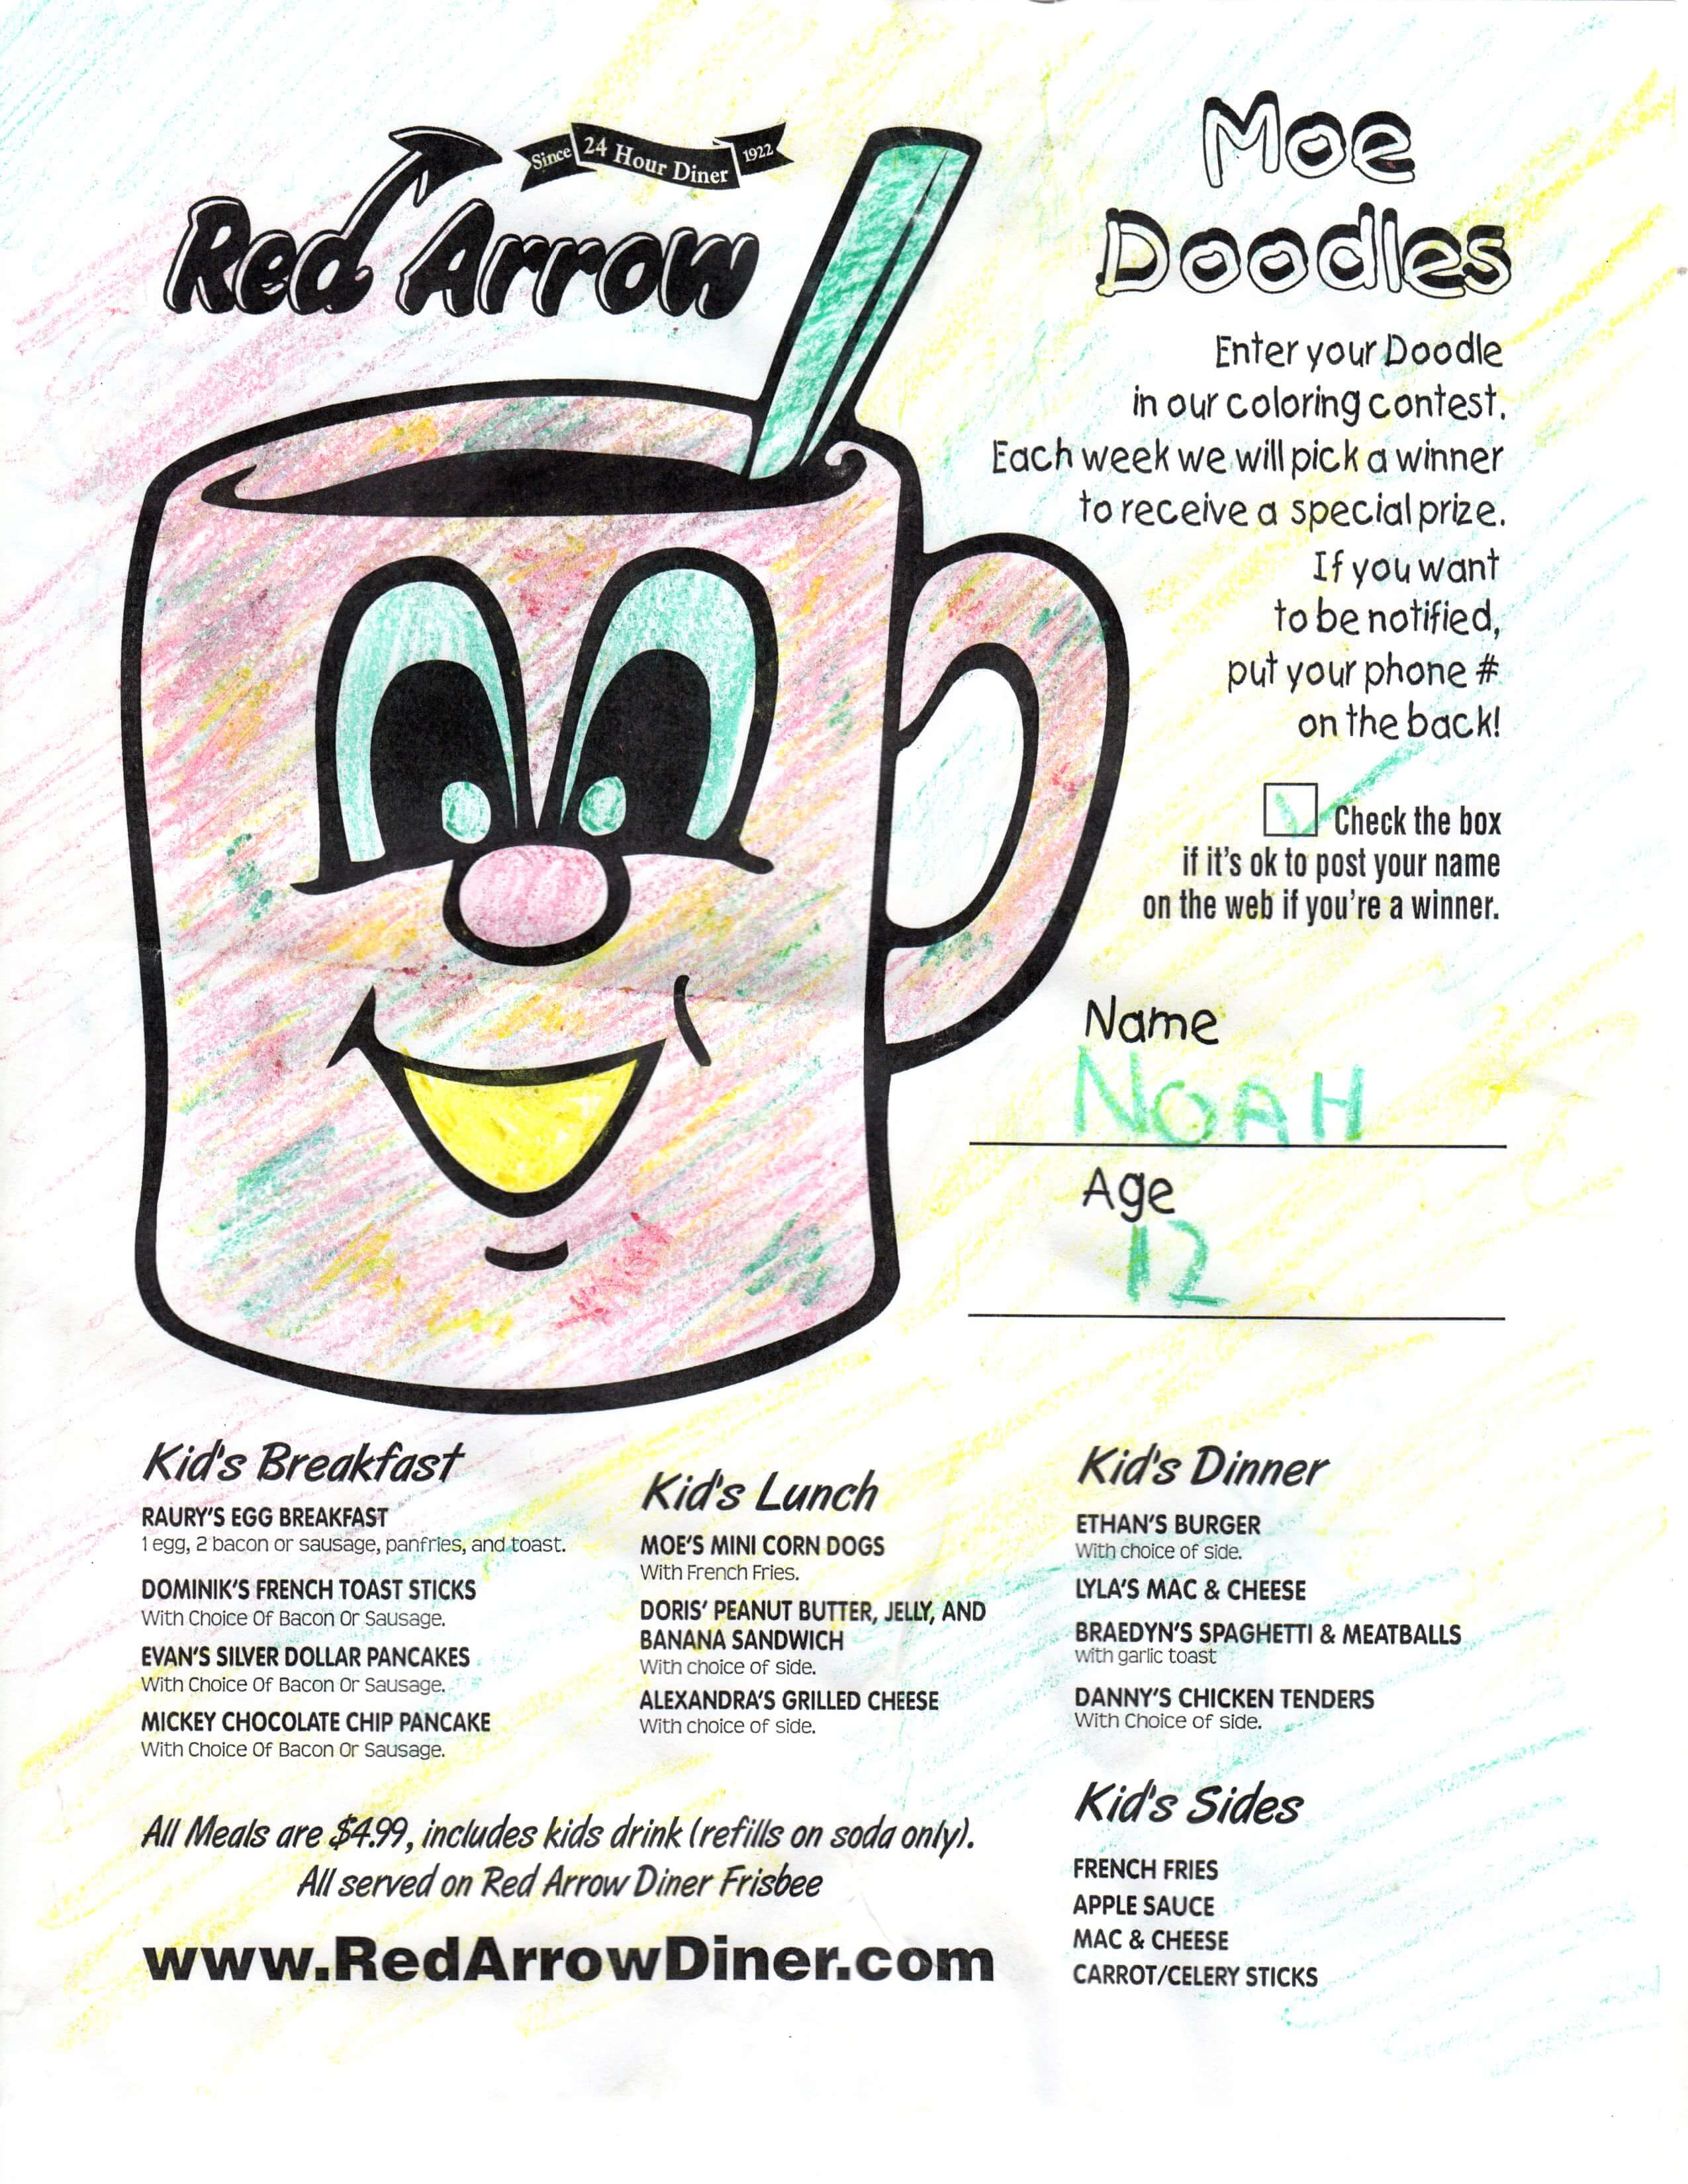 Since 24 Hour Diner 1922
Red Arrow
Moe
Doodles
Enter your Doodle
in our coloring contest.
Each week we will pick a winner
to receive a special prize.
If you want
to be notified,
put your phone #
on the back!
Check the box
if it's ok to post your name
on the web if you're a winner.
Name
NOAH
Age
12
Kid's Breakfast
RAURY'S EGG BREAKFAST
1 egg, 2 bacon or sausage, panfries, and toast.
DOMINIK'S FRENCH TOAST STICKS
With Choice Of Bacon Or Sausage.
EVAN'S SILVER DOLLAR PANCAKES
With Choice Of Bacon Or Sausage.
MICKEY CHOCOLATE CHIP PANCAKE
With Choice Of Bacon Or Sausage.
Kid's Lunch
MOE'S MINI CORN DOGS
With French Fries.
DORIS' PEANUT BUTTER, JELLY, AND
BANANA SANDWICH
With choice of side.
ALEXANDRA'S GRILLED CHEESE
With choice of side.
Kid's Dinner
ETHAN'S BURGER
With choice of side.
LYLA'S MAC & CHEESE
BRAEDYN'S SPAGHETTI & MEATBALLS
with garlic toast
DANNY'S CHICKEN TENDERS
With Choice of side.
Kid's Sides
FRENCH FRIES
APPLE SAUCE
MAC & CHEESE
CARROT/CELERY STICKS
All Meals are $4.99, includes kids drink (refills on soda only).
All served on Red Arrow Diner Frisbee
www.RedArrowDiner.com